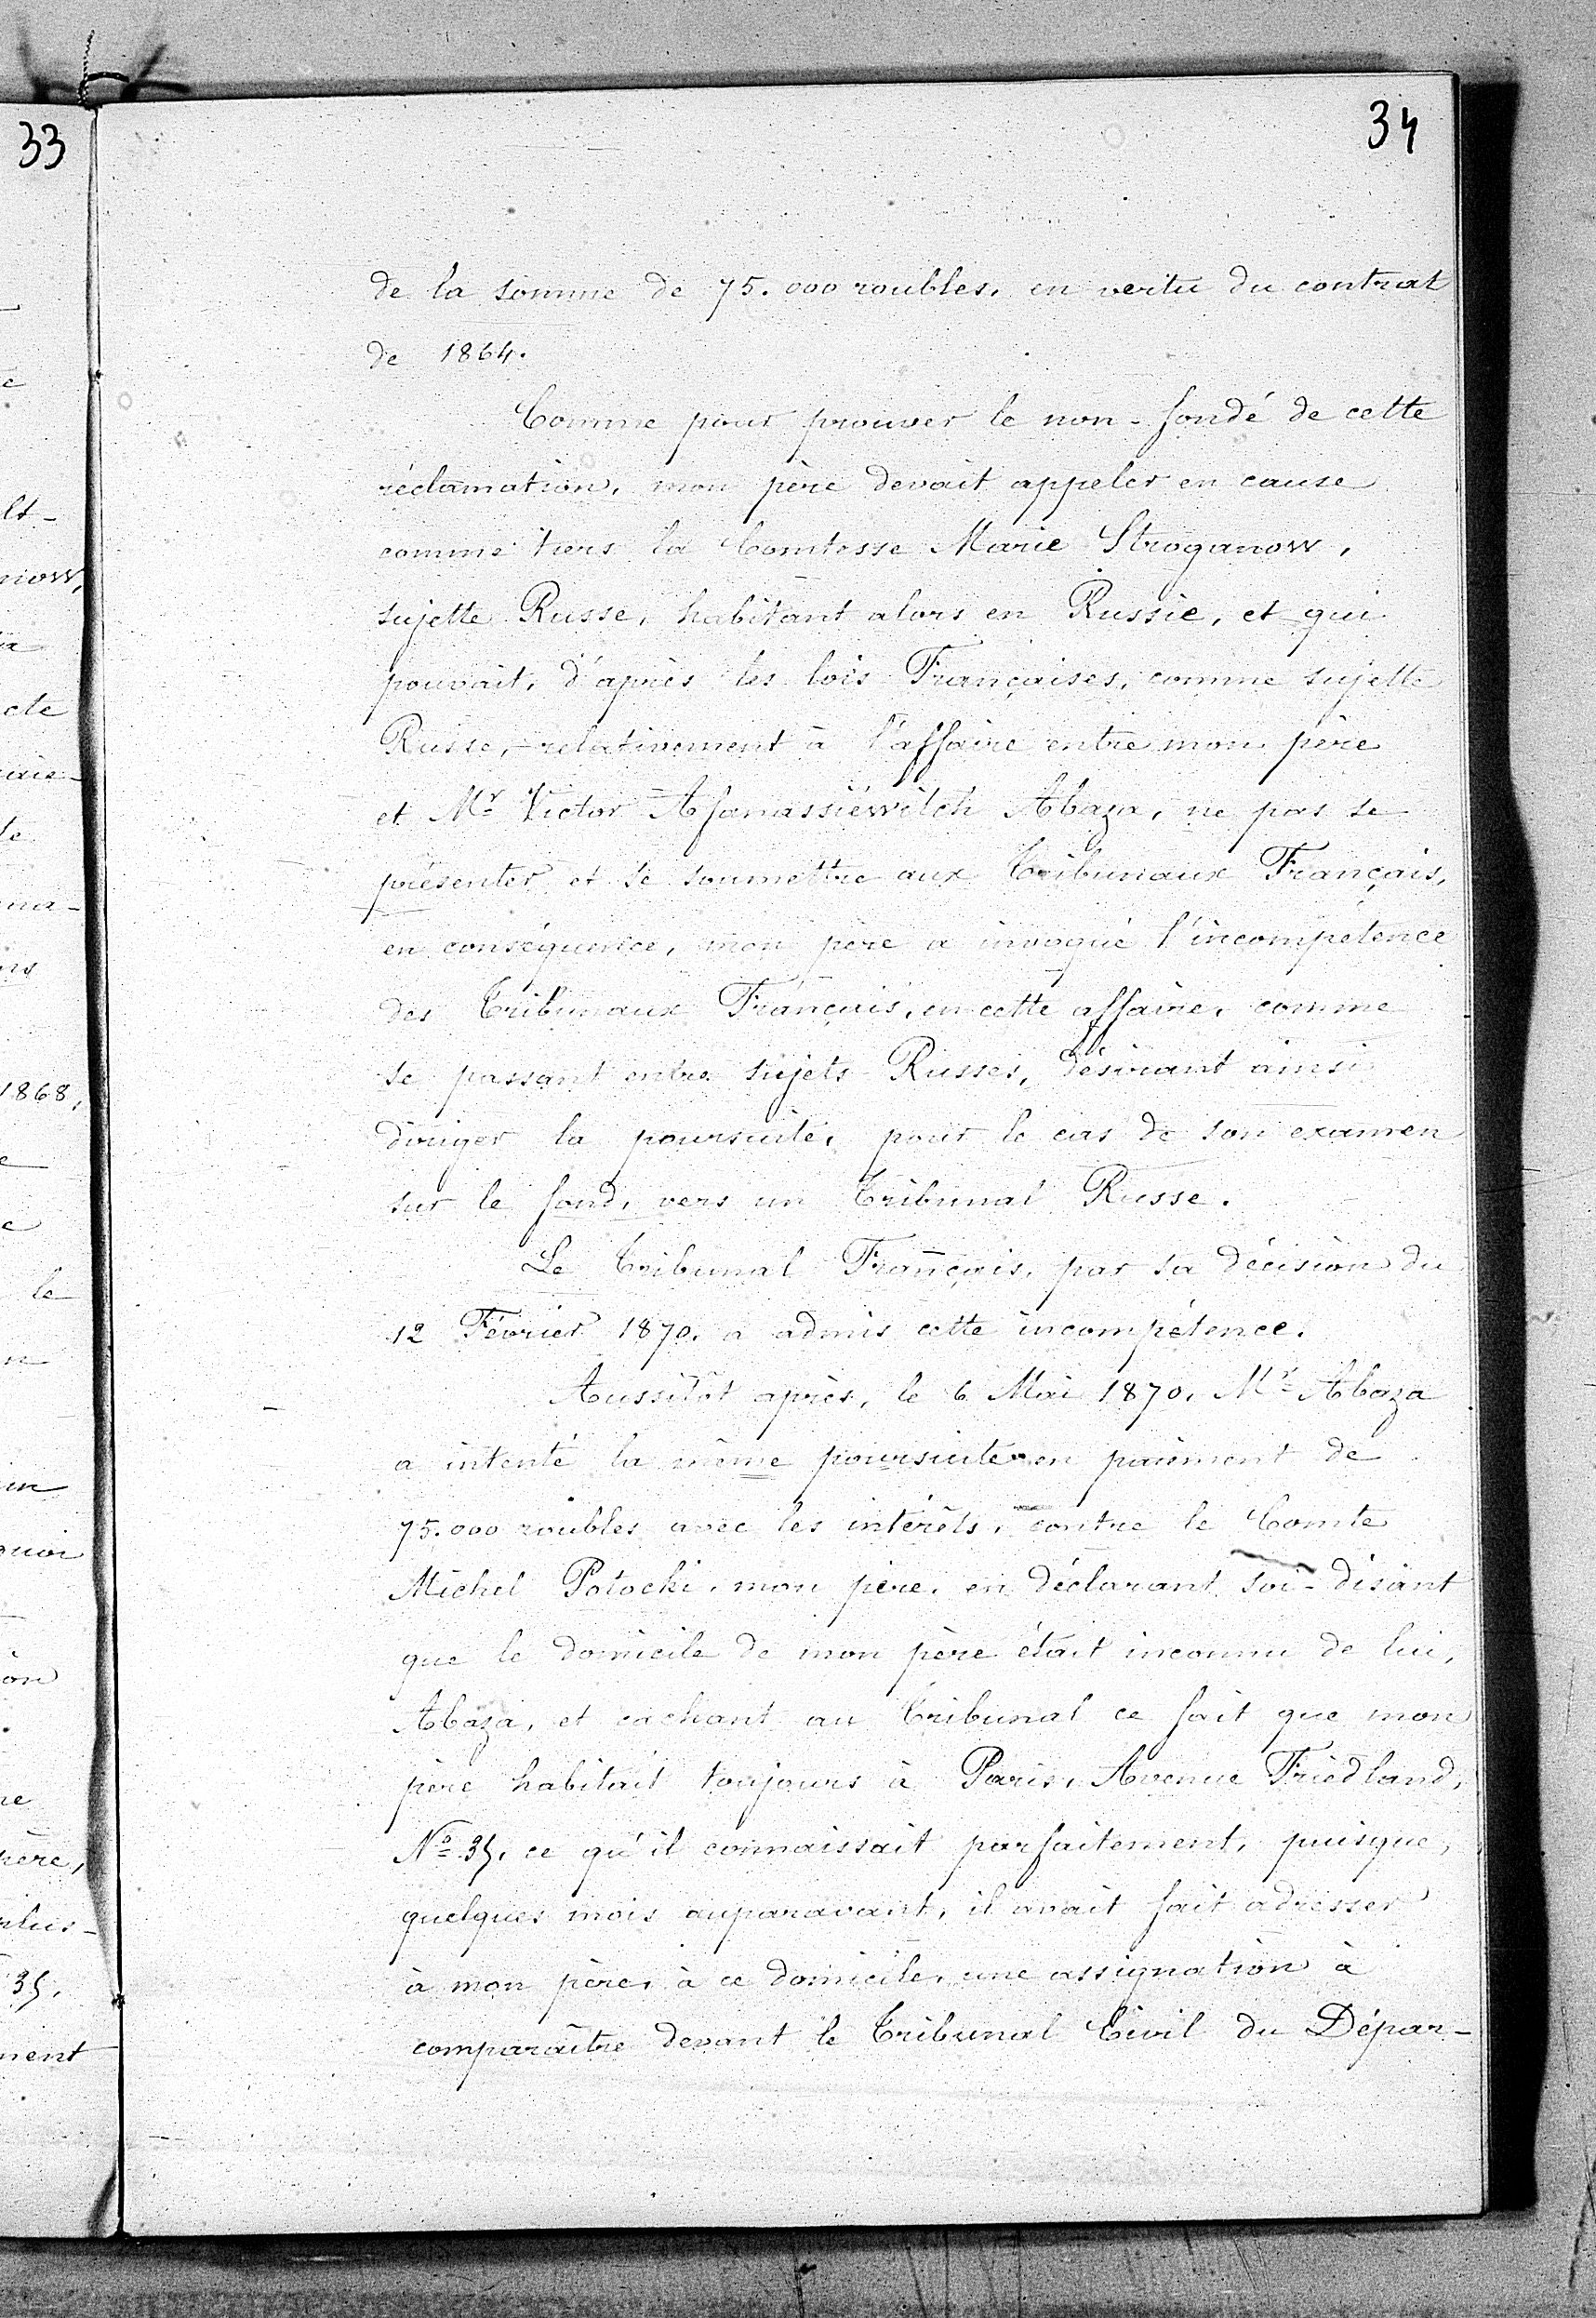 33
34
de la somme de 75.000 roubles, en vertu du contrat
de 1864.
Comme pour prouver le non-fondé de cette
réclamation, mon père devait appeler en cause
comme tiers la Comtesse Marie Stroganow,
sujette Russe, habitant alors en Russie, et qui
pouvait, d'après les lois Françaises, comme sujette
Russe, relativement à l'affaire entre mon père
et Mr Victor Afanassiéwitch Abaza, ne pas se
présenter et se soumettre aux Tribunaux Français,
en conséquence, mon père a invoqué l'incompetence
des Tribunaux Français, en cette affaire, comme
se passant entre sujets Russes, désirant ainsi
diriger la poursuite, pour le cas de son examen
sur le fond, vers un Tribunal Russe.
Le Tribunal Français, par sa décision du
12 Février 1870, a admis cette incompétence.
Aussitôt après, le 6 Mai 1870, Mr Abaza
a intenté la même poursuite en paiement de
75.000 roubles avec les intérêts, contre le Comte
Michel Potocki, mon père, en déclarant soi-disant
que le domicile de mon père était inconnu de lui,
Abaza, et cachant au Tribunal ce fait que mon
père habitait toujours à Paris, Avenue Friedland,
No 35, ce qu'il connaissait parfaitement, puisque,
quelques mois auparavant, il avait fait adresser
à mon père, à ce domicile, une assignation à
comparaître devant le Tribunal Civil du Dépar-